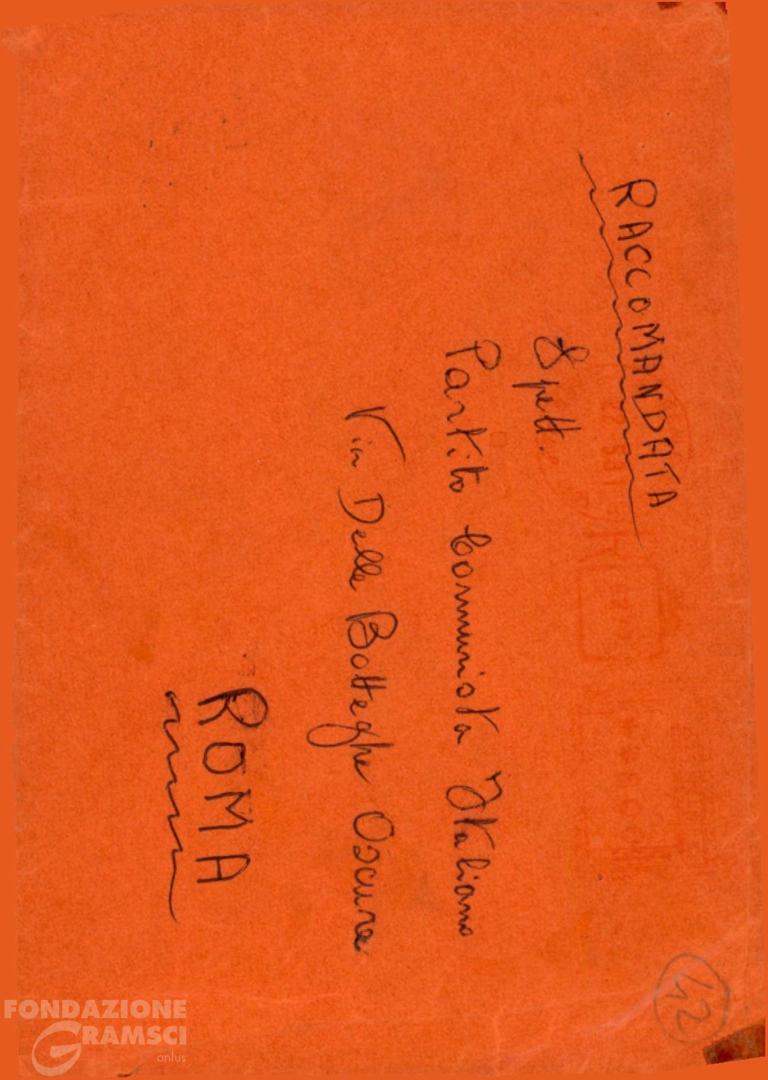 RACCOMANDATA
Spett.
Partito Comunista Italiano
Via Delle Botteghe Oscure
ROMA
42
FONDAZIONE
GRAMSCI
onlus